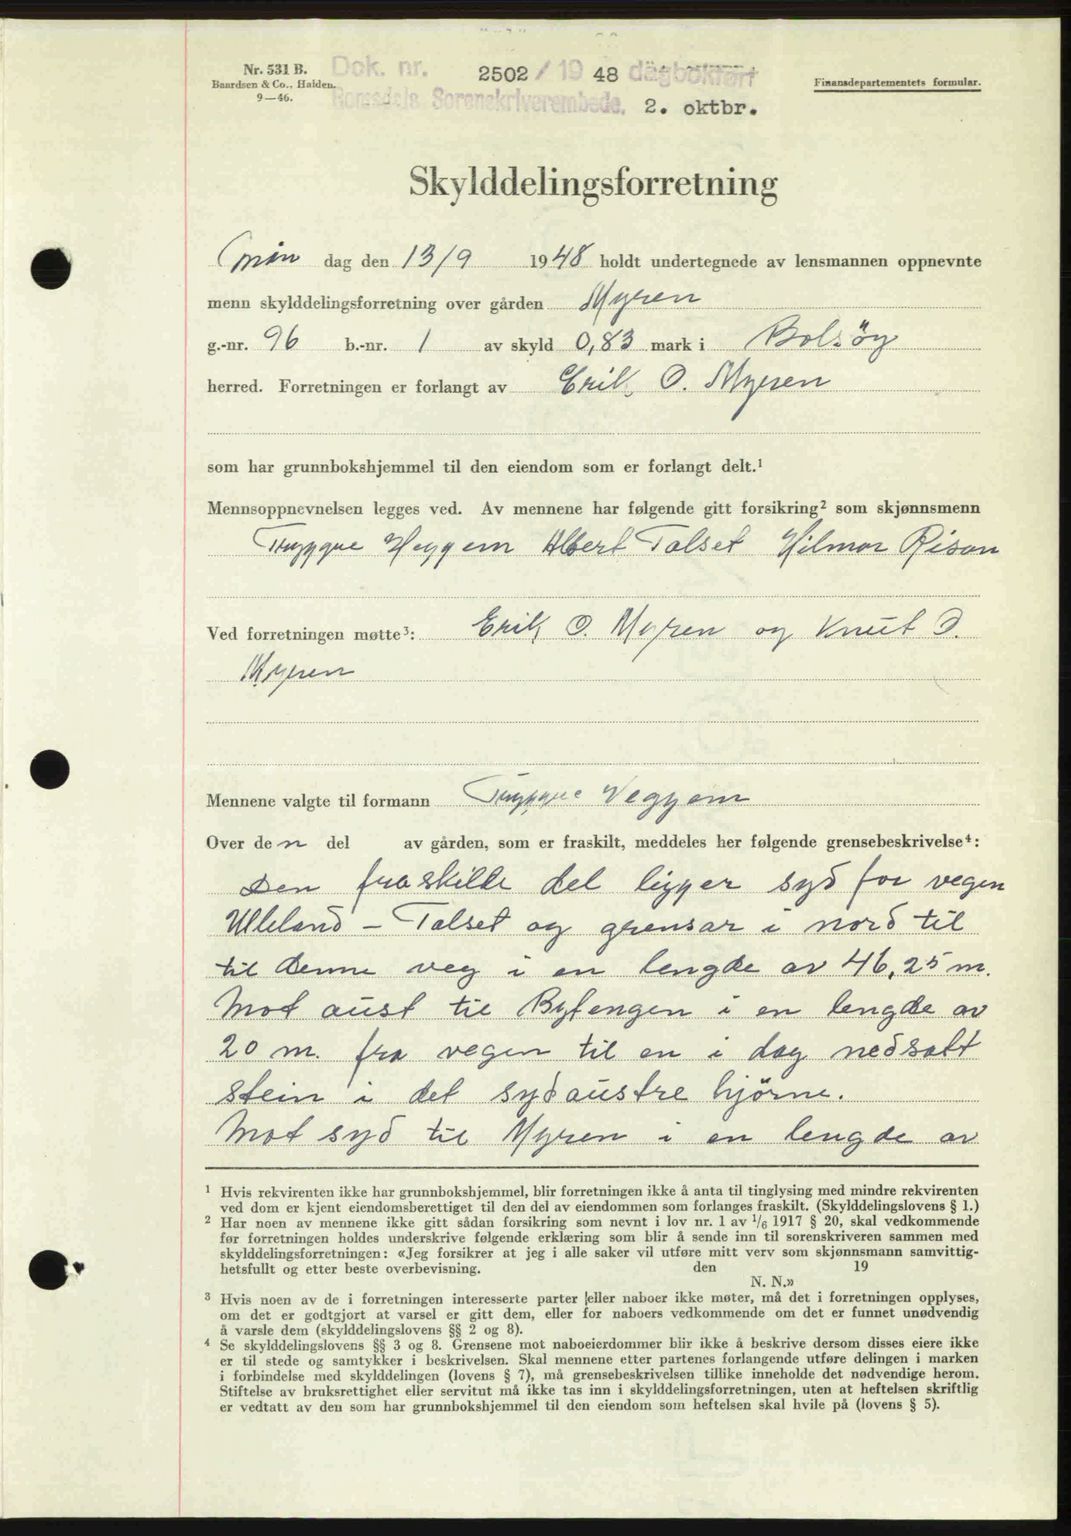 Nr. 531 B.
Baardsen & Co., Halden.
9—46.
Dok. nr. 2502 / 19 48 dagbokført
Romsdals Sorenskriverembede, 2. oktbr.
Finansdepartementets formular.
Skylddelingsforretning
Mån dag den 13/9 1948 holdt undertegnede av lensmannen oppnevnte
menn skylddelingsforretning over gården Myren
g.-nr. 96 b.-nr. 1 av skyld 0,83 mark i Bolsøy
herred. Forretningen er forlangt av Erik O. Myren
som har grunnbokshjemmel til den eiendom som er forlangt delt.¹
Mennsoppnevnelsen legges ved. Av mennene har følgende gitt forsikring² som skjønnsmenn
Tryggve Heggem Albert Talset Hilmar Risan
Ved forretningen møtte³: Erik O. Myren og Knut O.
Myren
Mennene valgte til formann Tryggve Heggem
Over den del av gården, som er fraskilt, meddeles her følgende grensebeskrivelse⁴:
Den fraskilde del ligger syd for vegen
Ulleland – Talset og grensar i nord til
til denne veg i en lengde av 46,25 m.
Mot aust til Bytengen i en lengde av
20 m. fra vegen til en i dag nedsatt
stein i det sydaustre hjörne.
Mot syd til Myren i en lengde av
¹ Hvis rekvirenten ikke har grunnbokshjemmel, blir forretningen ikke å anta til tinglysing med mindre rekvirenten
ved dom er kjent eiendomsberettiget til den del av eiendommen som forlanges fraskilt. (Skylddelingslovens § 1.)
² Har noen av mennene ikke gitt sådan forsikring som nevnt i lov nr. 1 av ¹/₆ 1917 § 20, skal vedkommende
før forretningen holdes underskrive følgende erklæring som blir å sende inn til sorenskriveren sammen med
skylddelingsforretningen: «Jeg forsikrer at jeg i alle saker vil utføre mitt verv som skjønnsmann samvittig-
hetsfullt og etter beste overbevisning. den 19
N. N.»
³ Hvis noen av de i forretningen interesserte parter eller naboer ikke møter, må det i forretningen opplyses,
om det er godtgjort at varsel er gitt dem, eller for naboers vedkommende om det er funnet unødvendig
å varsle dem (skylddelingslovens §§ 2 og 8).
⁴ Se skylddelingslovens §§ 3 og 8. Grensene mot naboeierdommer blir ikke å beskrive dersom disses eiere ikke
er til stede og samtykker i beskrivelsen. Skal mennene etter partenes forlangende utføre delingen i marken
i forbindelse med skylddelingen (lovens § 7), må grensebeskrivelsen tillike inneholde det nødvendige herom.
Stiftelse av bruksrettighet eller servitut må ikke tas inn i skylddelingsforretningen, uten at heftelsen skriftlig
er vedtatt av den som har grunnbokshjemmel til den eiendom som heftelsen skal hvile på (lovens § 5).